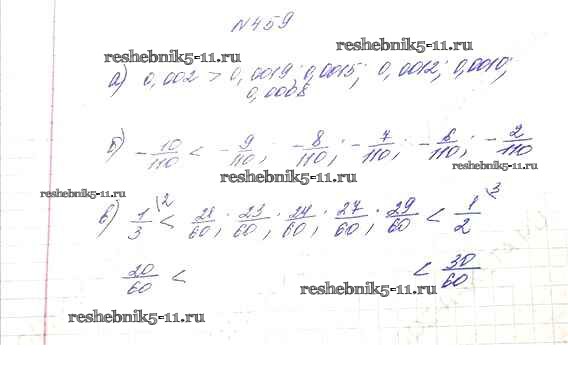 N459
reshebnik5-11.ru
reshebnik5-11.ru
а) 0,002 > 0,0019; 0,0015; 0,0012; 0,0010;
0,0008
б) -10/110 < -9/110; -8/110; -7/110; -6/110; -2/110
reshebnik5-11.ru
reshebnik5-11.ru
в) 1/3 \2 < 21/60; 23/60; 24/60; 27/60; 29/60 < 1/2 \3
20/60 < < 30/60
reshebnik5-11.ru
reshebnik5-11.ru